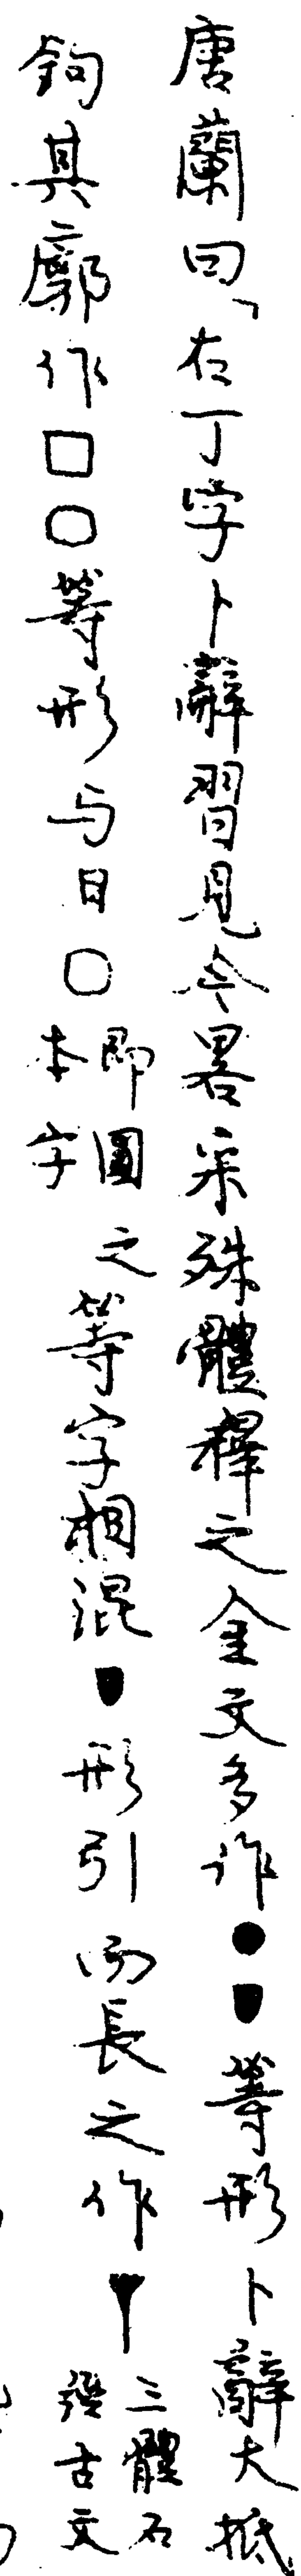 唐蘭曰、「右丁字卜辭習見今畧采殊體釋之金文多作●▼等形卜辭大抵
鉤其廓作□○等形与日○即圓本字之等字相混▼形引而長之作丅三體石經古文